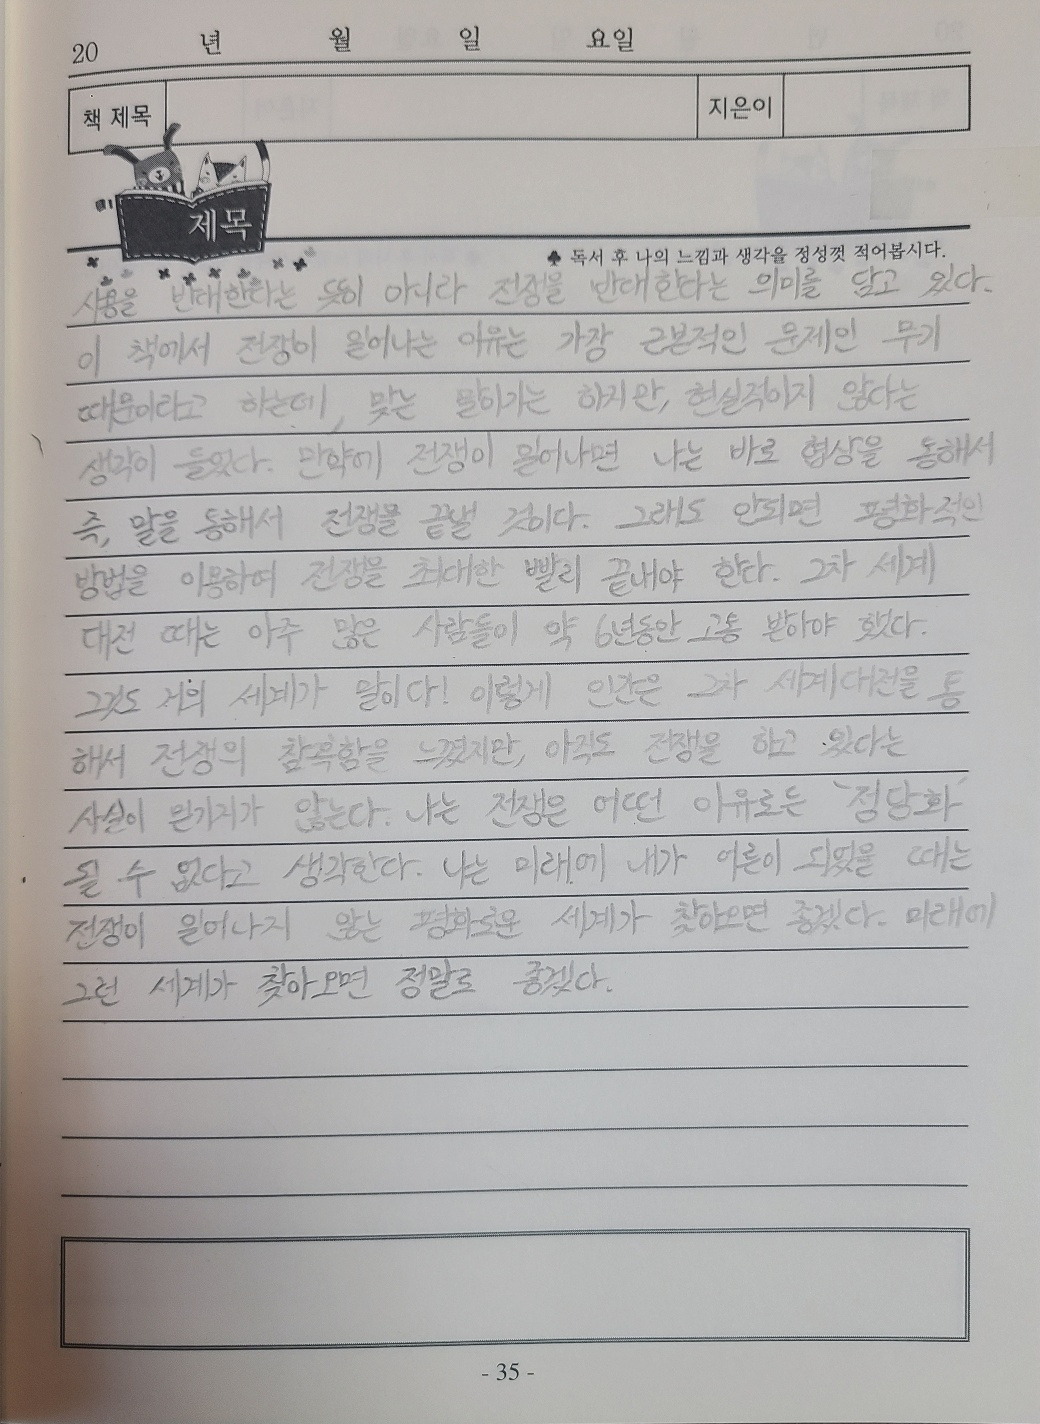 20 년 월 일 요일
책 제목 지은이
제목
♣ 독서 후 나의 느낌과 생각을 정성껏 적어봅시다.
사용을 반대한다는 뜻이 아니라 전쟁을 반대한다는 의미를 담고 있다.
이 책에서 전쟁이 일어나는 이유는 가장 근본적인 문제인 무기
때문이라고 하는데, 맞는 말이기는 하지만, 현실적이지 않다는
생각이 들었다. 만약에 전쟁이 일어나면 나는 바로 협상을 통해서
즉, 말을 통해서 전쟁을 끝낼 것이다. 그래도 안되면 평화적인
방법을 이용하여 전쟁을 최대한 빨리 끝내야 한다. 2차 세계
대전 때는 아주 많은 사람들이 약 6년동안 고통 받아야 했다.
그것도 거의 세계가 말이다! 이렇게 인간은 2차 세계대전을 통
해서 전쟁의 참혹함을 느꼈지만, 아직도 전쟁을 하고 있다는
사실이 믿기지가 않는다. 나는 전쟁은 어떤 이유로든 '정당화'
될 수 없다고 생각한다. 나는 미래에 내가 어른이 되었을 때는
전쟁이 일어나지 않는 평화로운 세계가 찾아오면 좋겠다. 미래에
그런 세계가 찾아오면 정말로 좋겠다.
- 35 -